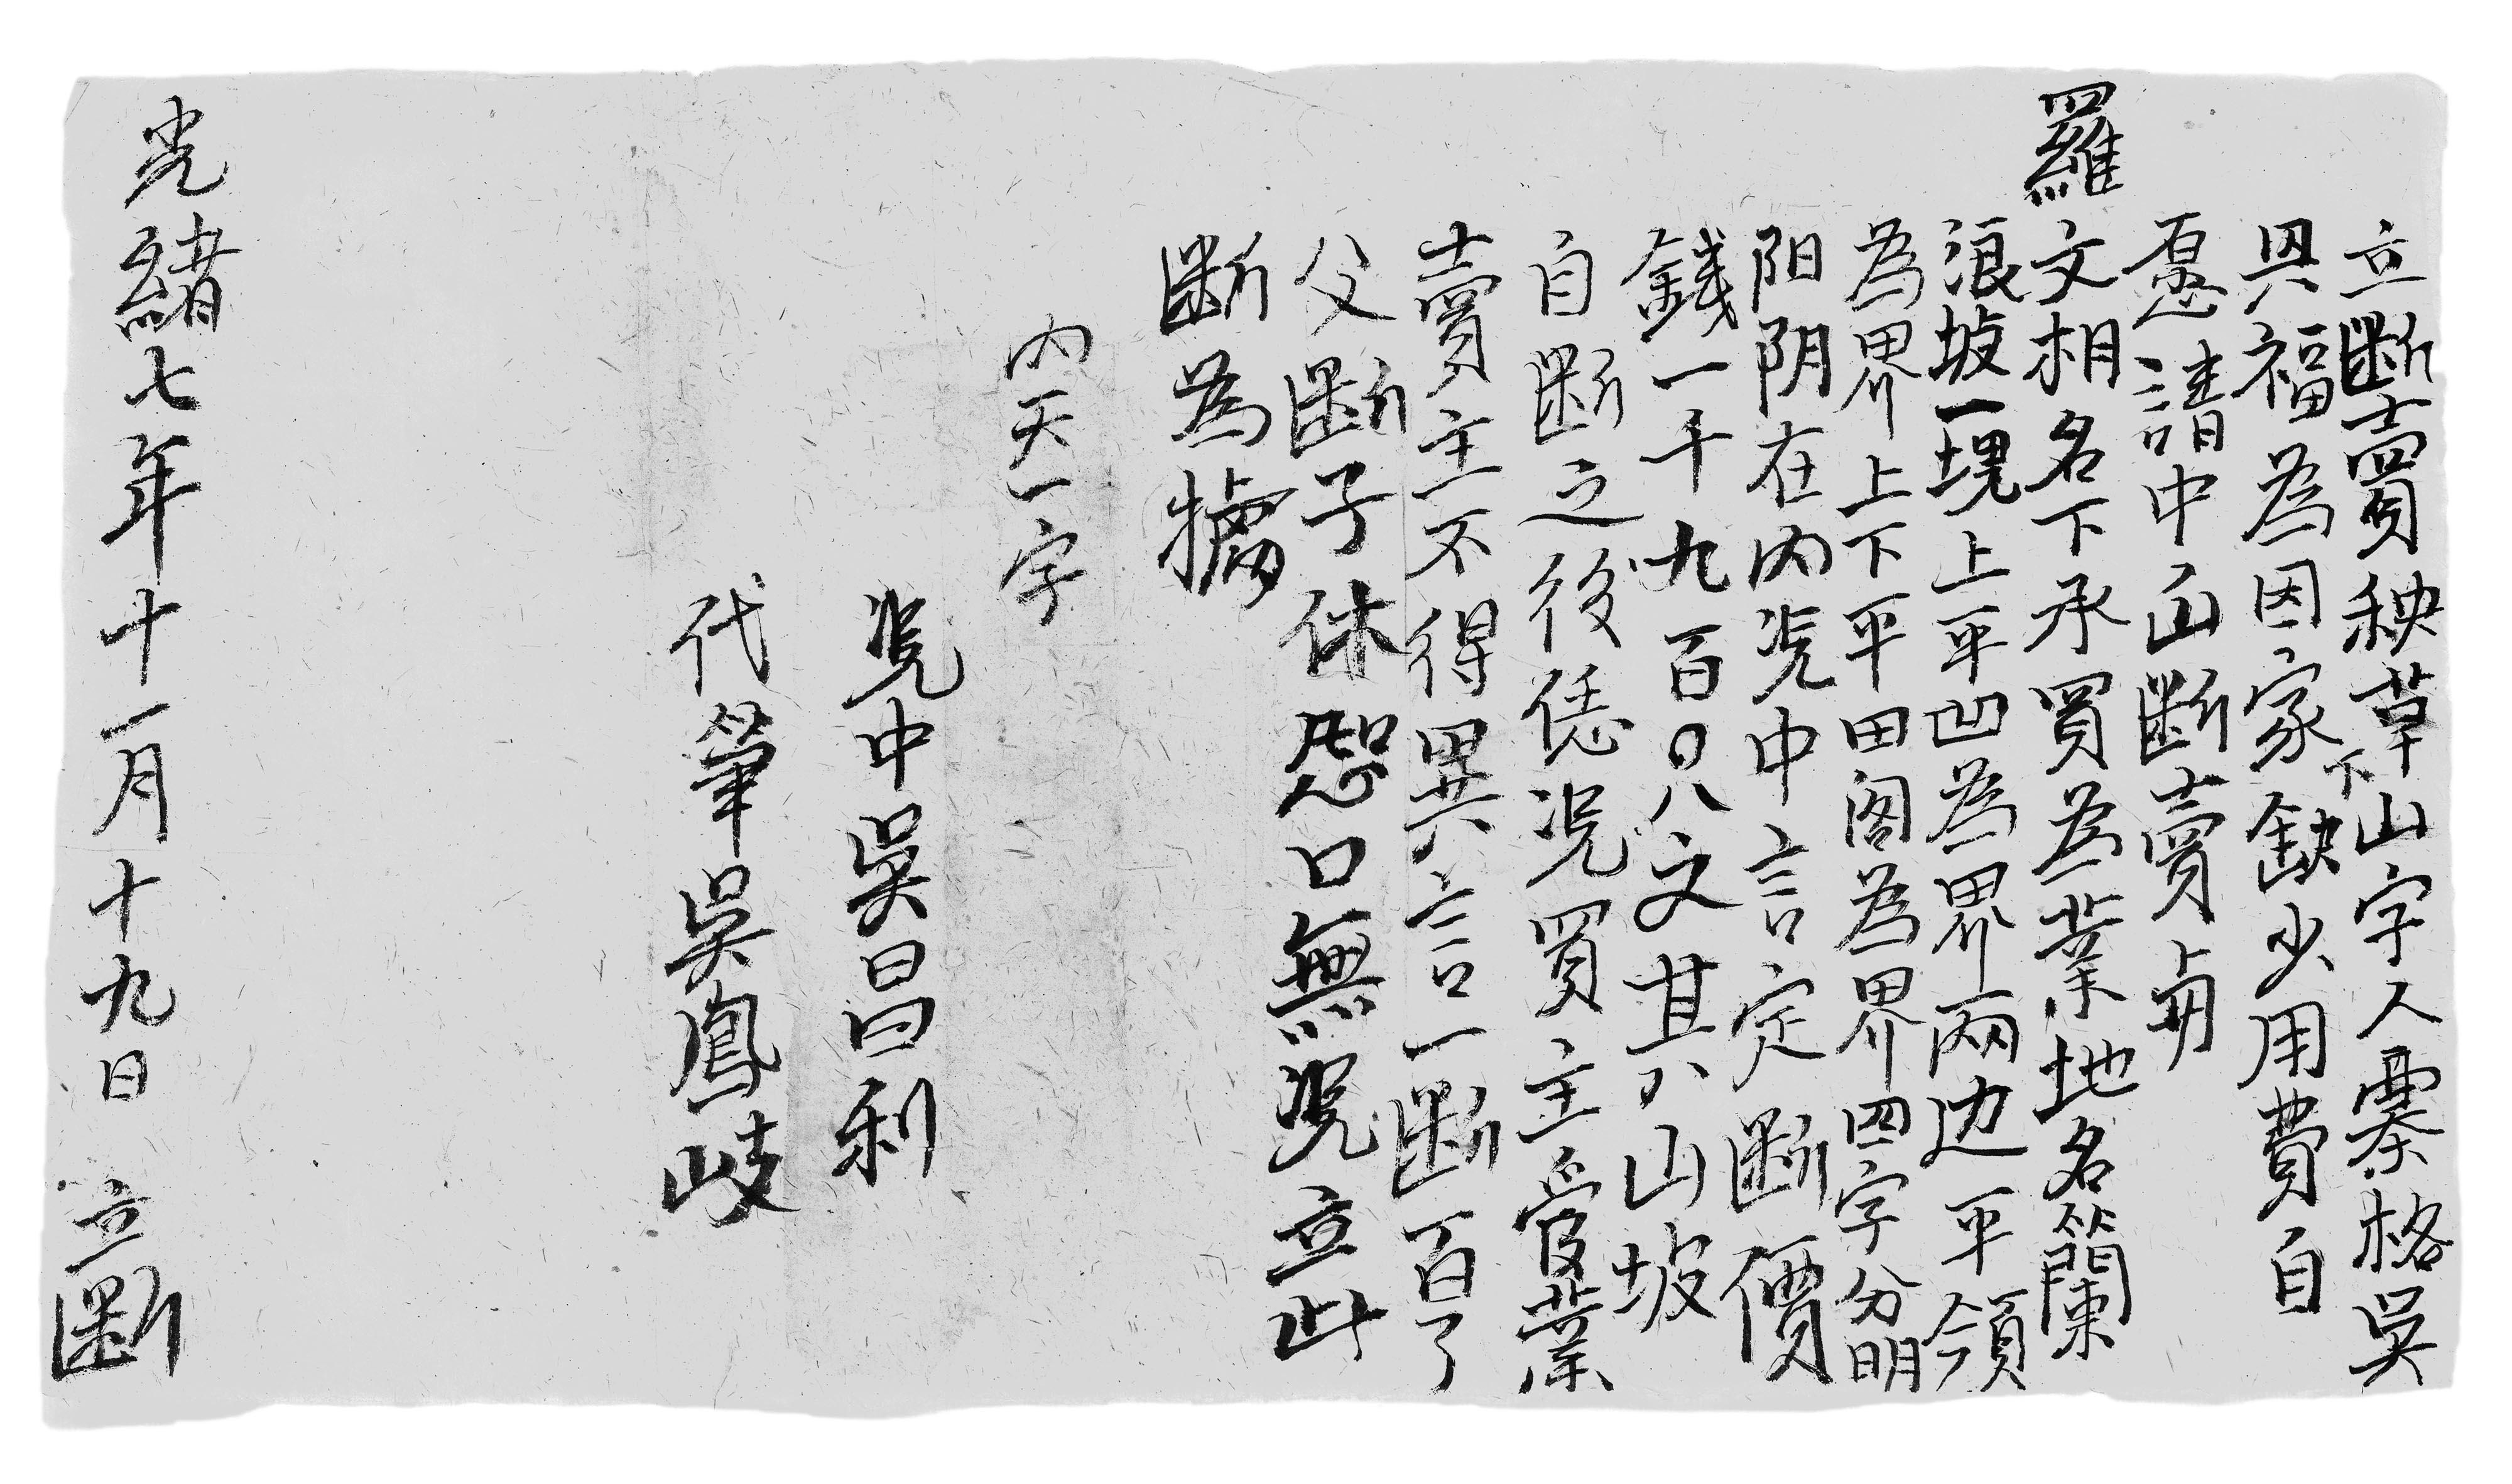 立斷賣秧草下山字人寨格吳
興福為因家缺少用費自
愿請中出斷賣與
羅文相名下承買為業地名蘭
浪坡一塊上平凹為界兩边平領
為界上下平田阁為界四字分明
阳阴在内凴中言定斷價
錢一千九百〇八文其山坡
自斷之後凭凴買主管業
賣主不得異言一斷百了
父斷子休怨口無凴立此
斷為㨿
内天一字
凴中吳昌利
代筆吳鳳岐
光緒七年十一月十九日 立斷